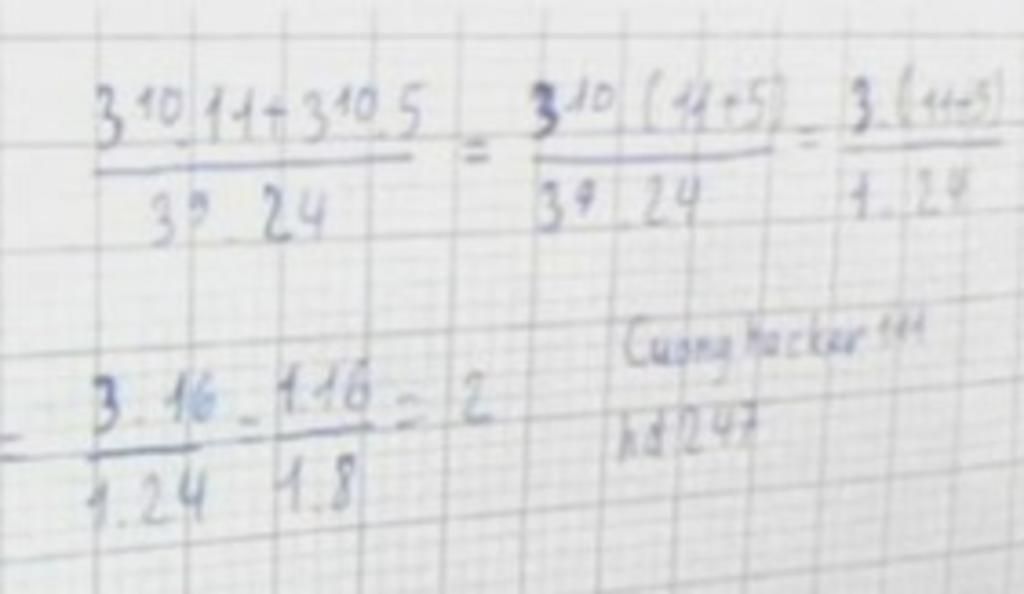 3¹⁰.11+3¹⁰.5 / 3⁹.24 = 3¹⁰.(11+5) / 3⁹.24 = 3.(11+5) / 1.24
= 3.16 / 1.24 = 1.16 / 1.8 = 2
CuongHacker111
hd247